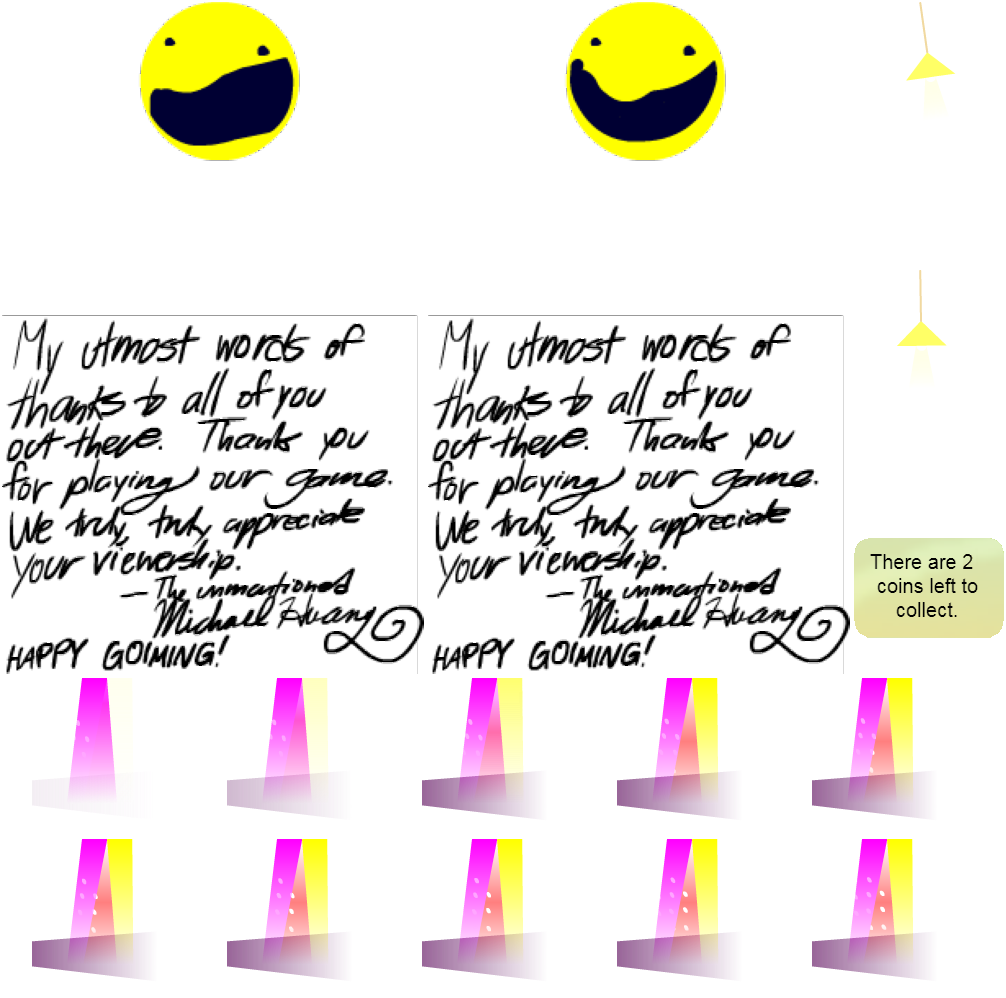 My utmost words of
thanks to all of you
out there. Thanks you
for playing our game.
We truly, truly appreciate
your viewership.
— The unmentioned
Michael Huang
HAPPY GOIMING!
My utmost words of
thanks to all of you
out there. Thanks you
for playing our game.
We truly, truly appreciate
your viewership.
— The unmentioned
Michael Huang
HAPPY GOIMING!
There are 2
coins left to
collect.